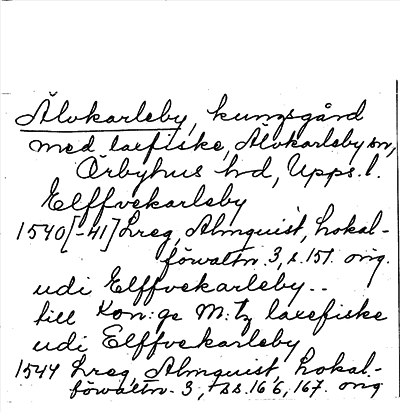 Älvkarleby, kungsgård
med laxfiske, Älvkarleby sn,
Örbyhus hd, Upps. l.
Elffvekarleby
1540[-41] Lreg, Almquist, Lokal-
förvaltn. 3, s. 151. orig.
udi Elffvekarleby..
till Kon:ge M:tz laxefiske
udi Elffvekarleby
1544 Lreg, Almquist, Lokal-
förvaltn. 3, ss. 166, 167. orig